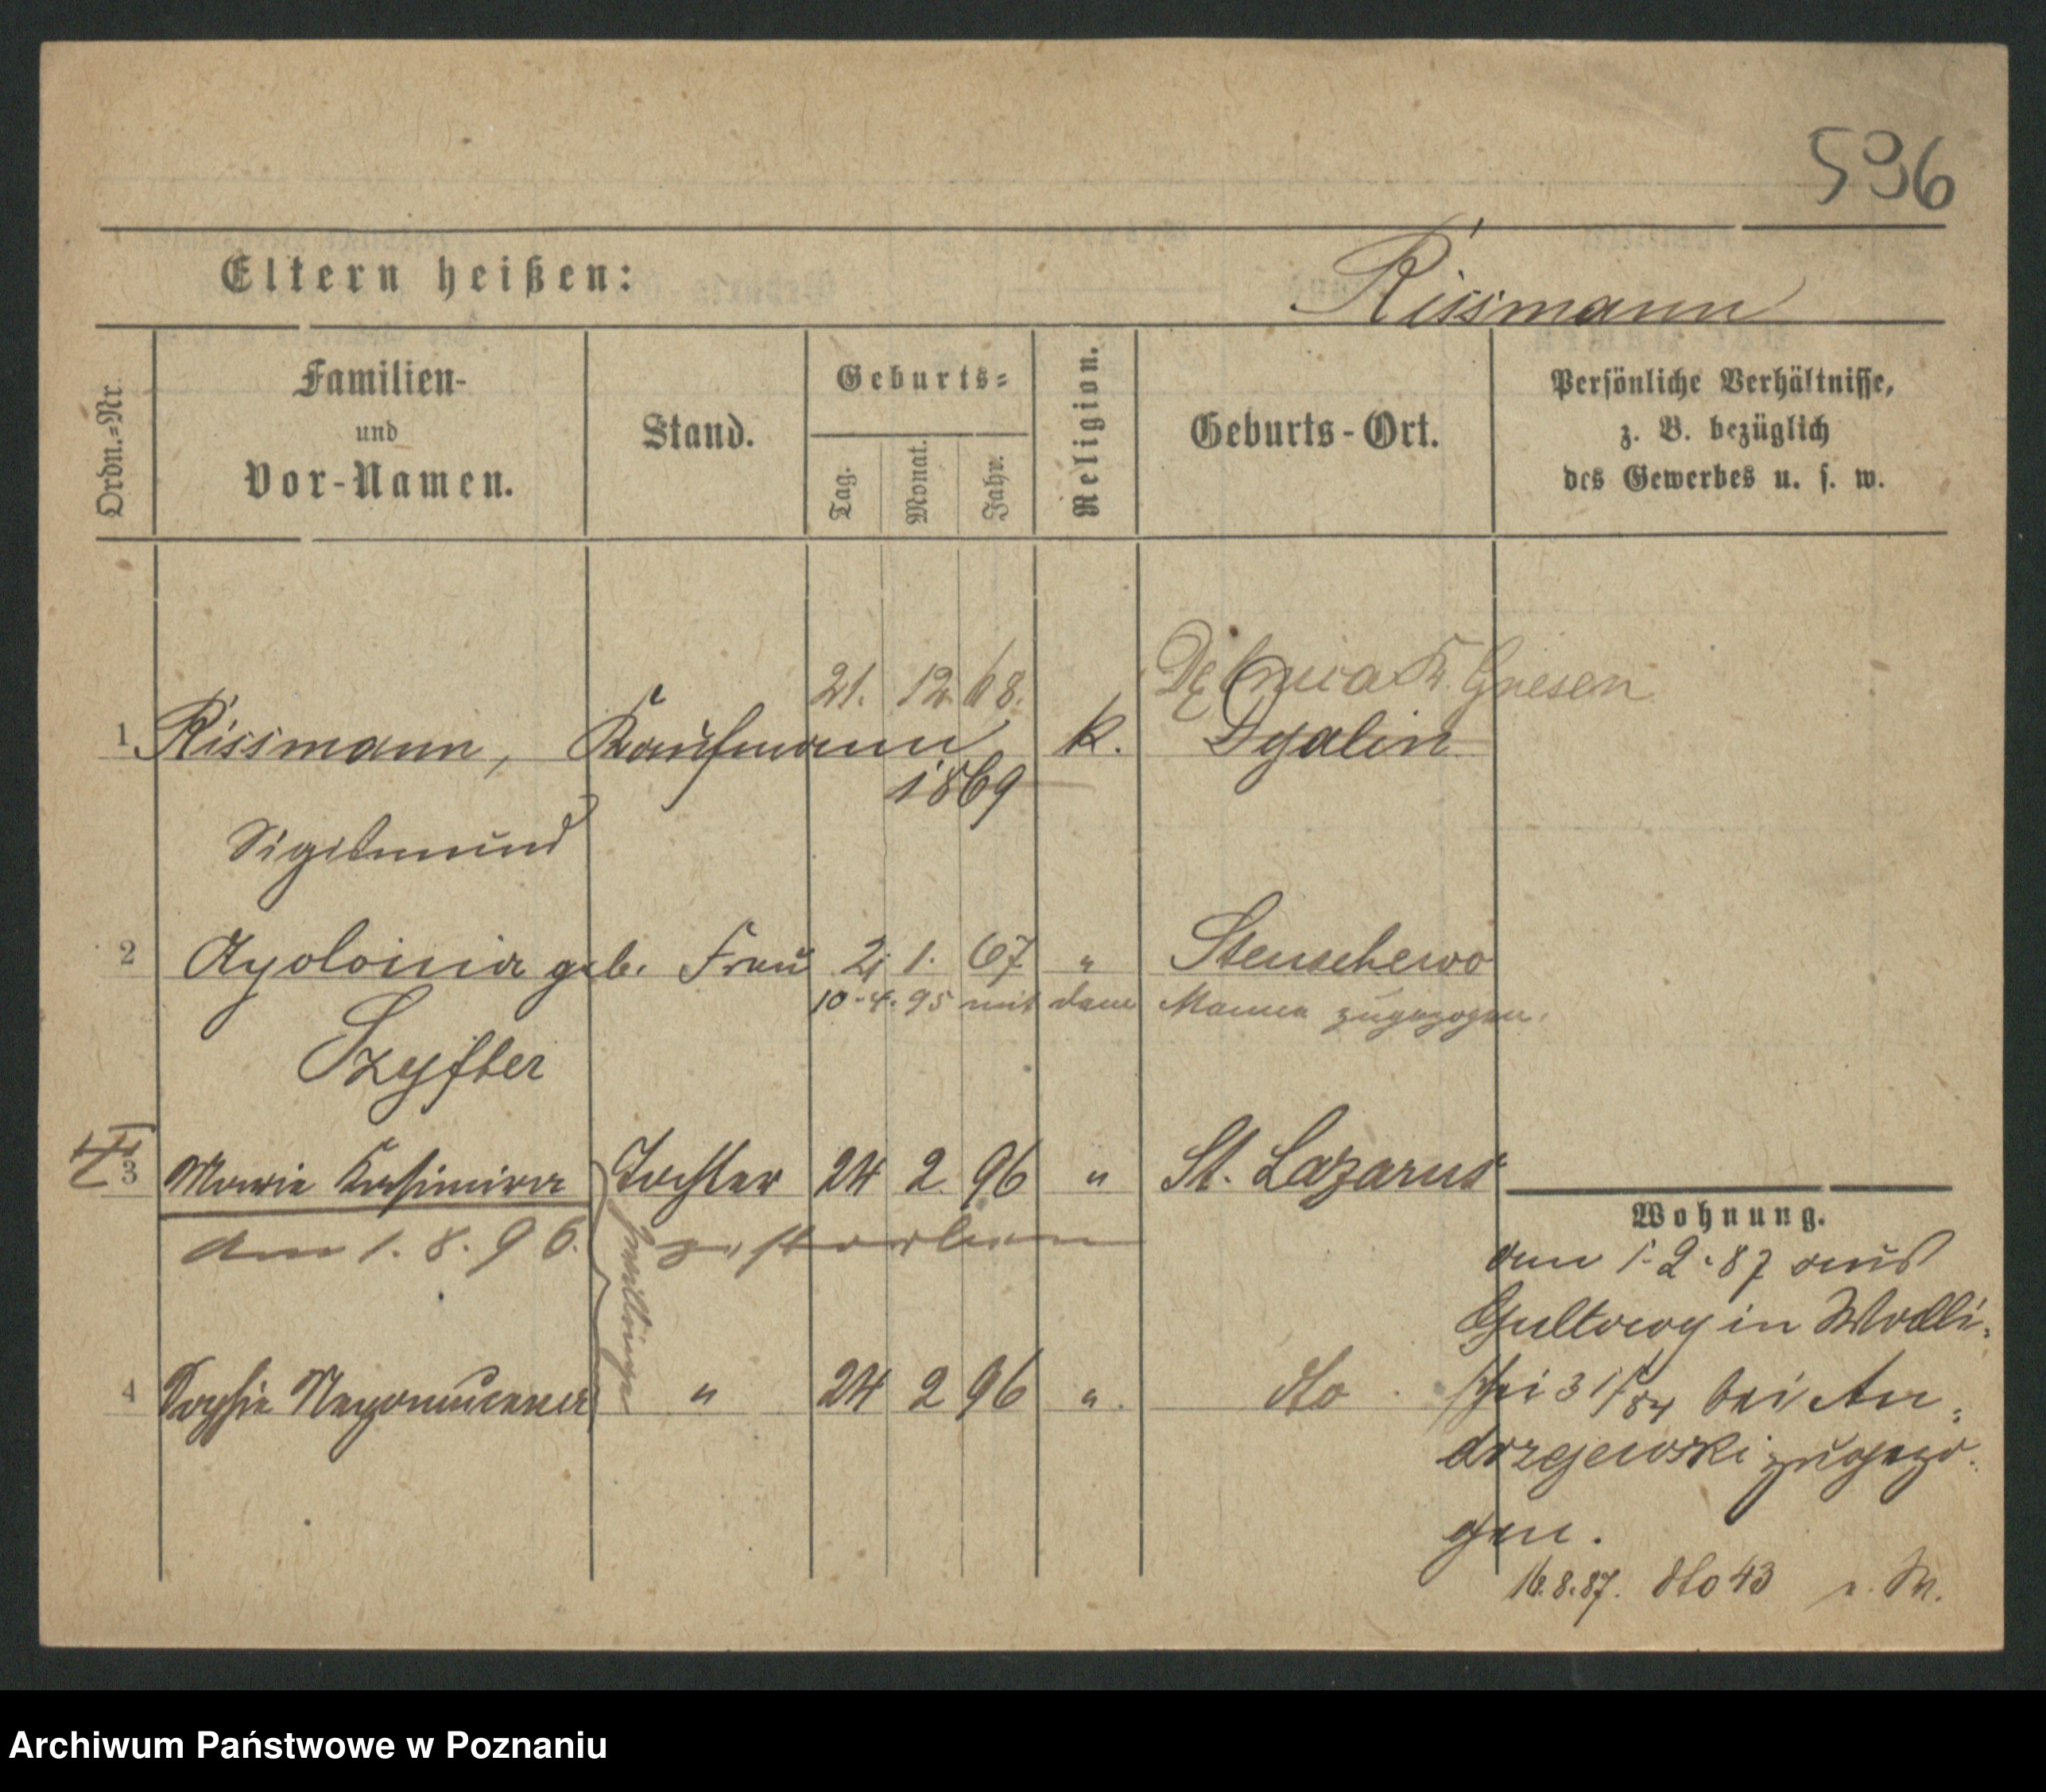 596
Eltern heißen:
Rissmann
Ordn.-Nr.
Familien-
und
Vor-Namen.
Stand.
Geburts-
Tag.
Monat.
Jahr.
Religion.
Geburts-Ort.
Persönliche Verhältnisse,
z. B. bezüglich
des Gewerbes u. s. w.
21. 12. 68. Kr. Gnesen
1 Rissmann, Kaufmann k. Dyalin
1869
Sigismund
2 Apolonia geb. Frau 2 1. 67 " Stenschewo
10-4.95 mit dem Manne zugezogen.
Szyfter
3 Marie Kasimira Tochter 24 2 96 " St. Lazarus
am 1.8.96. gestorben
Zwillinge
4 Sophie Nepomucena " 24 2 96 " dto
Wohnung.
am 1-2-87 aus
Gultowy in Wodli-
31/84 bei An-
drzejewski zugezo-
gen.
16.8.87. dto 43
Archiwum Państwowe w Poznaniu